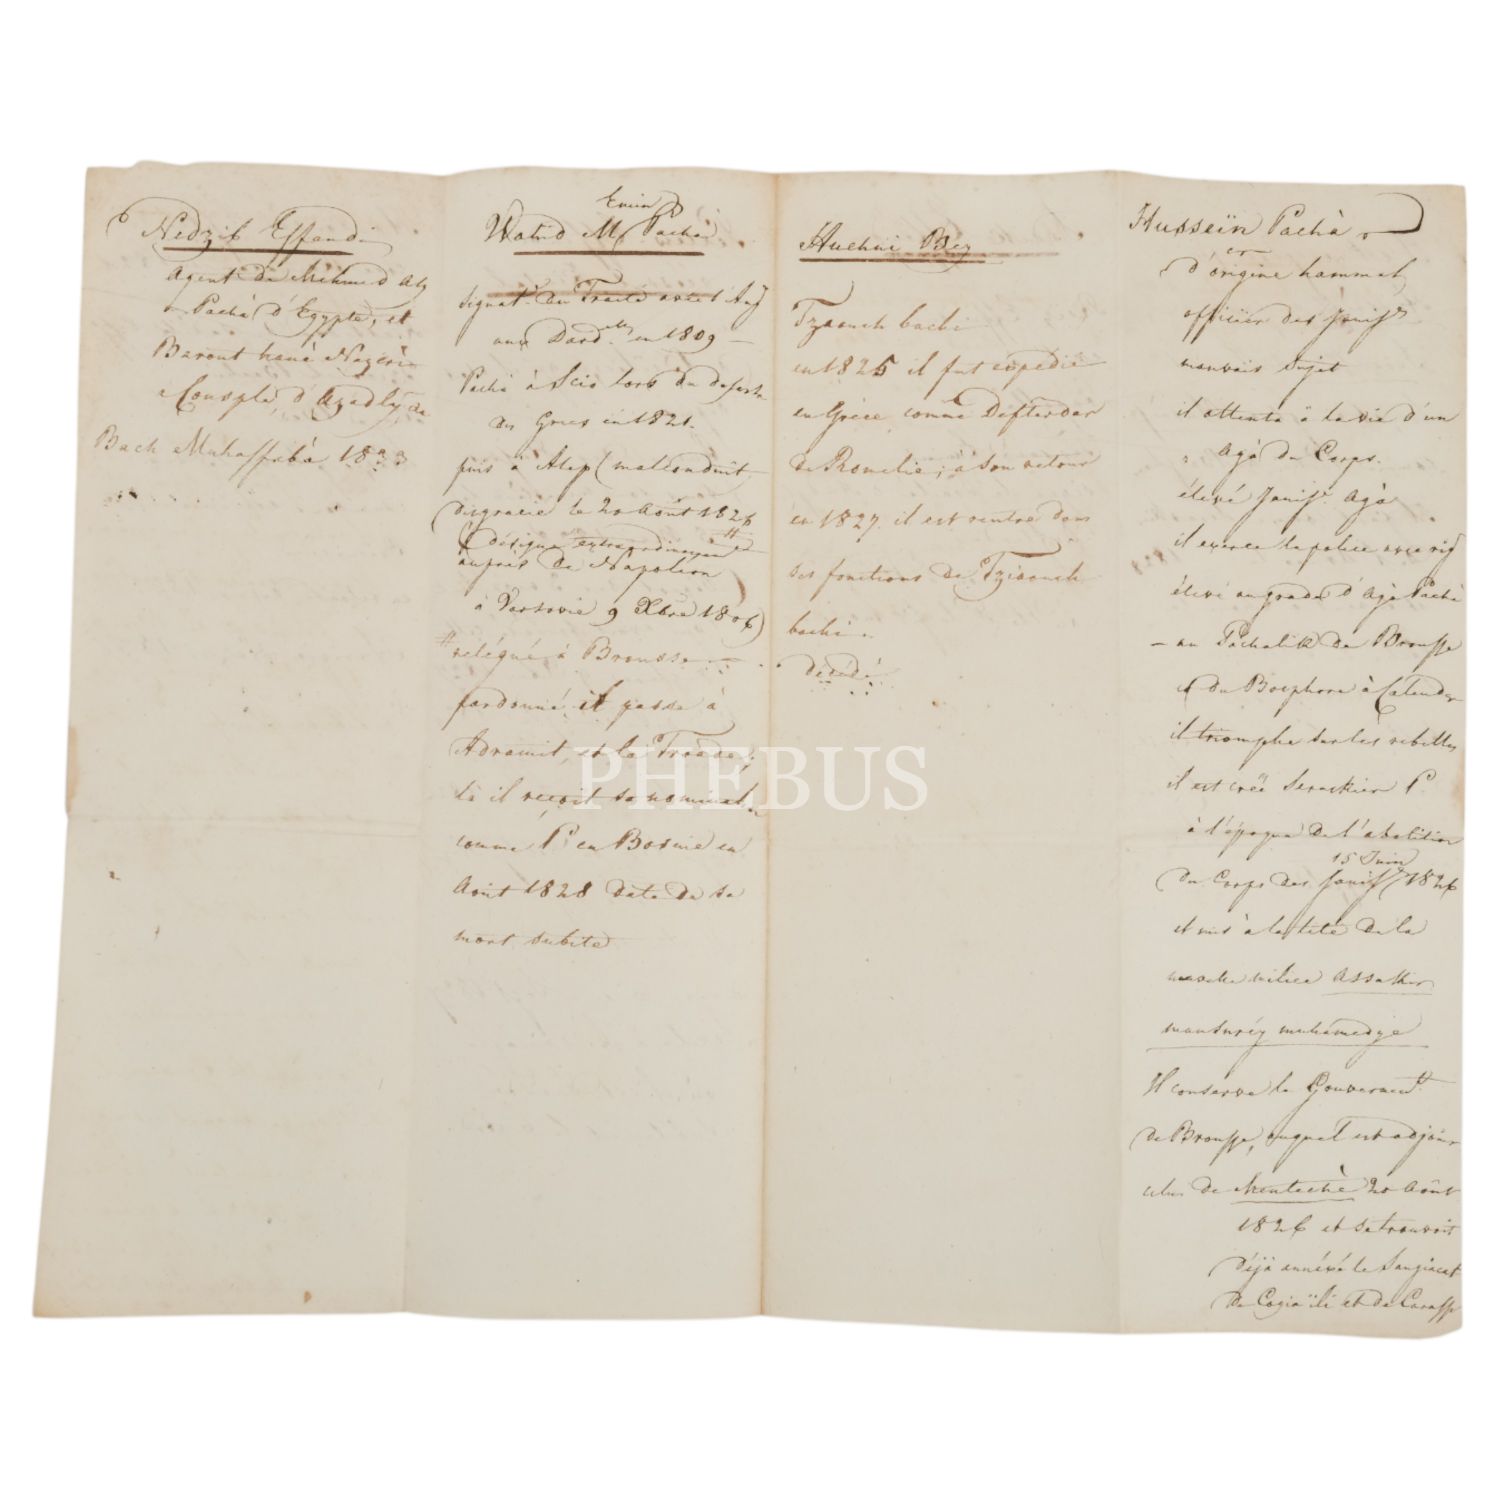 Nedzib Effendi
Agent de Mehmed Aly
Pachà d'Egypte, et
Barout hanè Nazeri
d'Azadly, de
Bach Muhassebè 1833
Emin
Wahid M. Pachà
signat.e du Traité avec l'Ang
aux Dard.elles en 1809 —
Pachà à Scio lors du
des Grecs en 1821.
puis à Alep (mal conduit
disgracié le 20 Août 1826 #
(désigné extraordinairem.t
auprès de Napoléon
à Varsovie 9 Xbre 1806)
# relégué à Brousse —
pardonné, il passe à
Adramit, et la Troade;
là il reçoit sa nominat.
comme P. en Bosnie en
Août 1828 date de sa
mort subite
Husni Bey
Tzaouch bachi
en 1825 il fut expédié
en Grèce comme Defterdar
de Romelie; à son retour
en 1827. il est rentré dans
ses fonctions de Tziaouch
bachi.
décédé
Husseïn Pachà
d'origine hammal,
officier des Janiss.
mauvais sujet
il attenta à la vie d'un
Agà du Corps.
élevé Janiss. Agà
il exerce la police avec rig
élevé au grade d'Agà Pachà
— au Pachalik de Brousse
et du Bosphore à Calender
il triomphe sur les rebelles
il est créé Seraskier P.
à l'époque de l'abolition
15 Juin
du Corps des Janiss. 1826
et mis à la tête de la
nouvelle milice Assakir
mansuréy muhamedye
Il conserve le Gouvernem.t
de Brousse, auquel est adjoint
celui de Menteché 20 Août
1826 et se trouvoit
déjà annéxé le Sangiacat
de Cogia ïli et de Carassi
PHEBUS